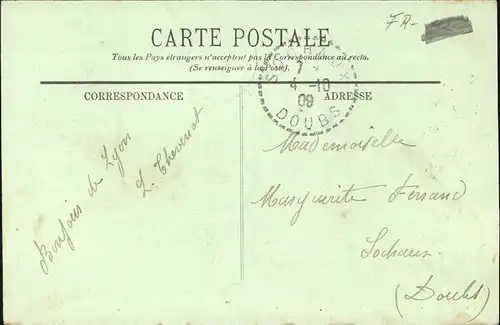 FR-
CARTE POSTALE
Tous les Pays étrangers n'acceptent pas la Correspondance au recto.
(Se renseigner à la Poste)
7
4 -10
09
DOUBS
CORRESPONDANCE
ADRESSE
Bonjour de Lyon
L. Thevenot
Mademoiselle
Marguerite
Sochaux
(Doubs)